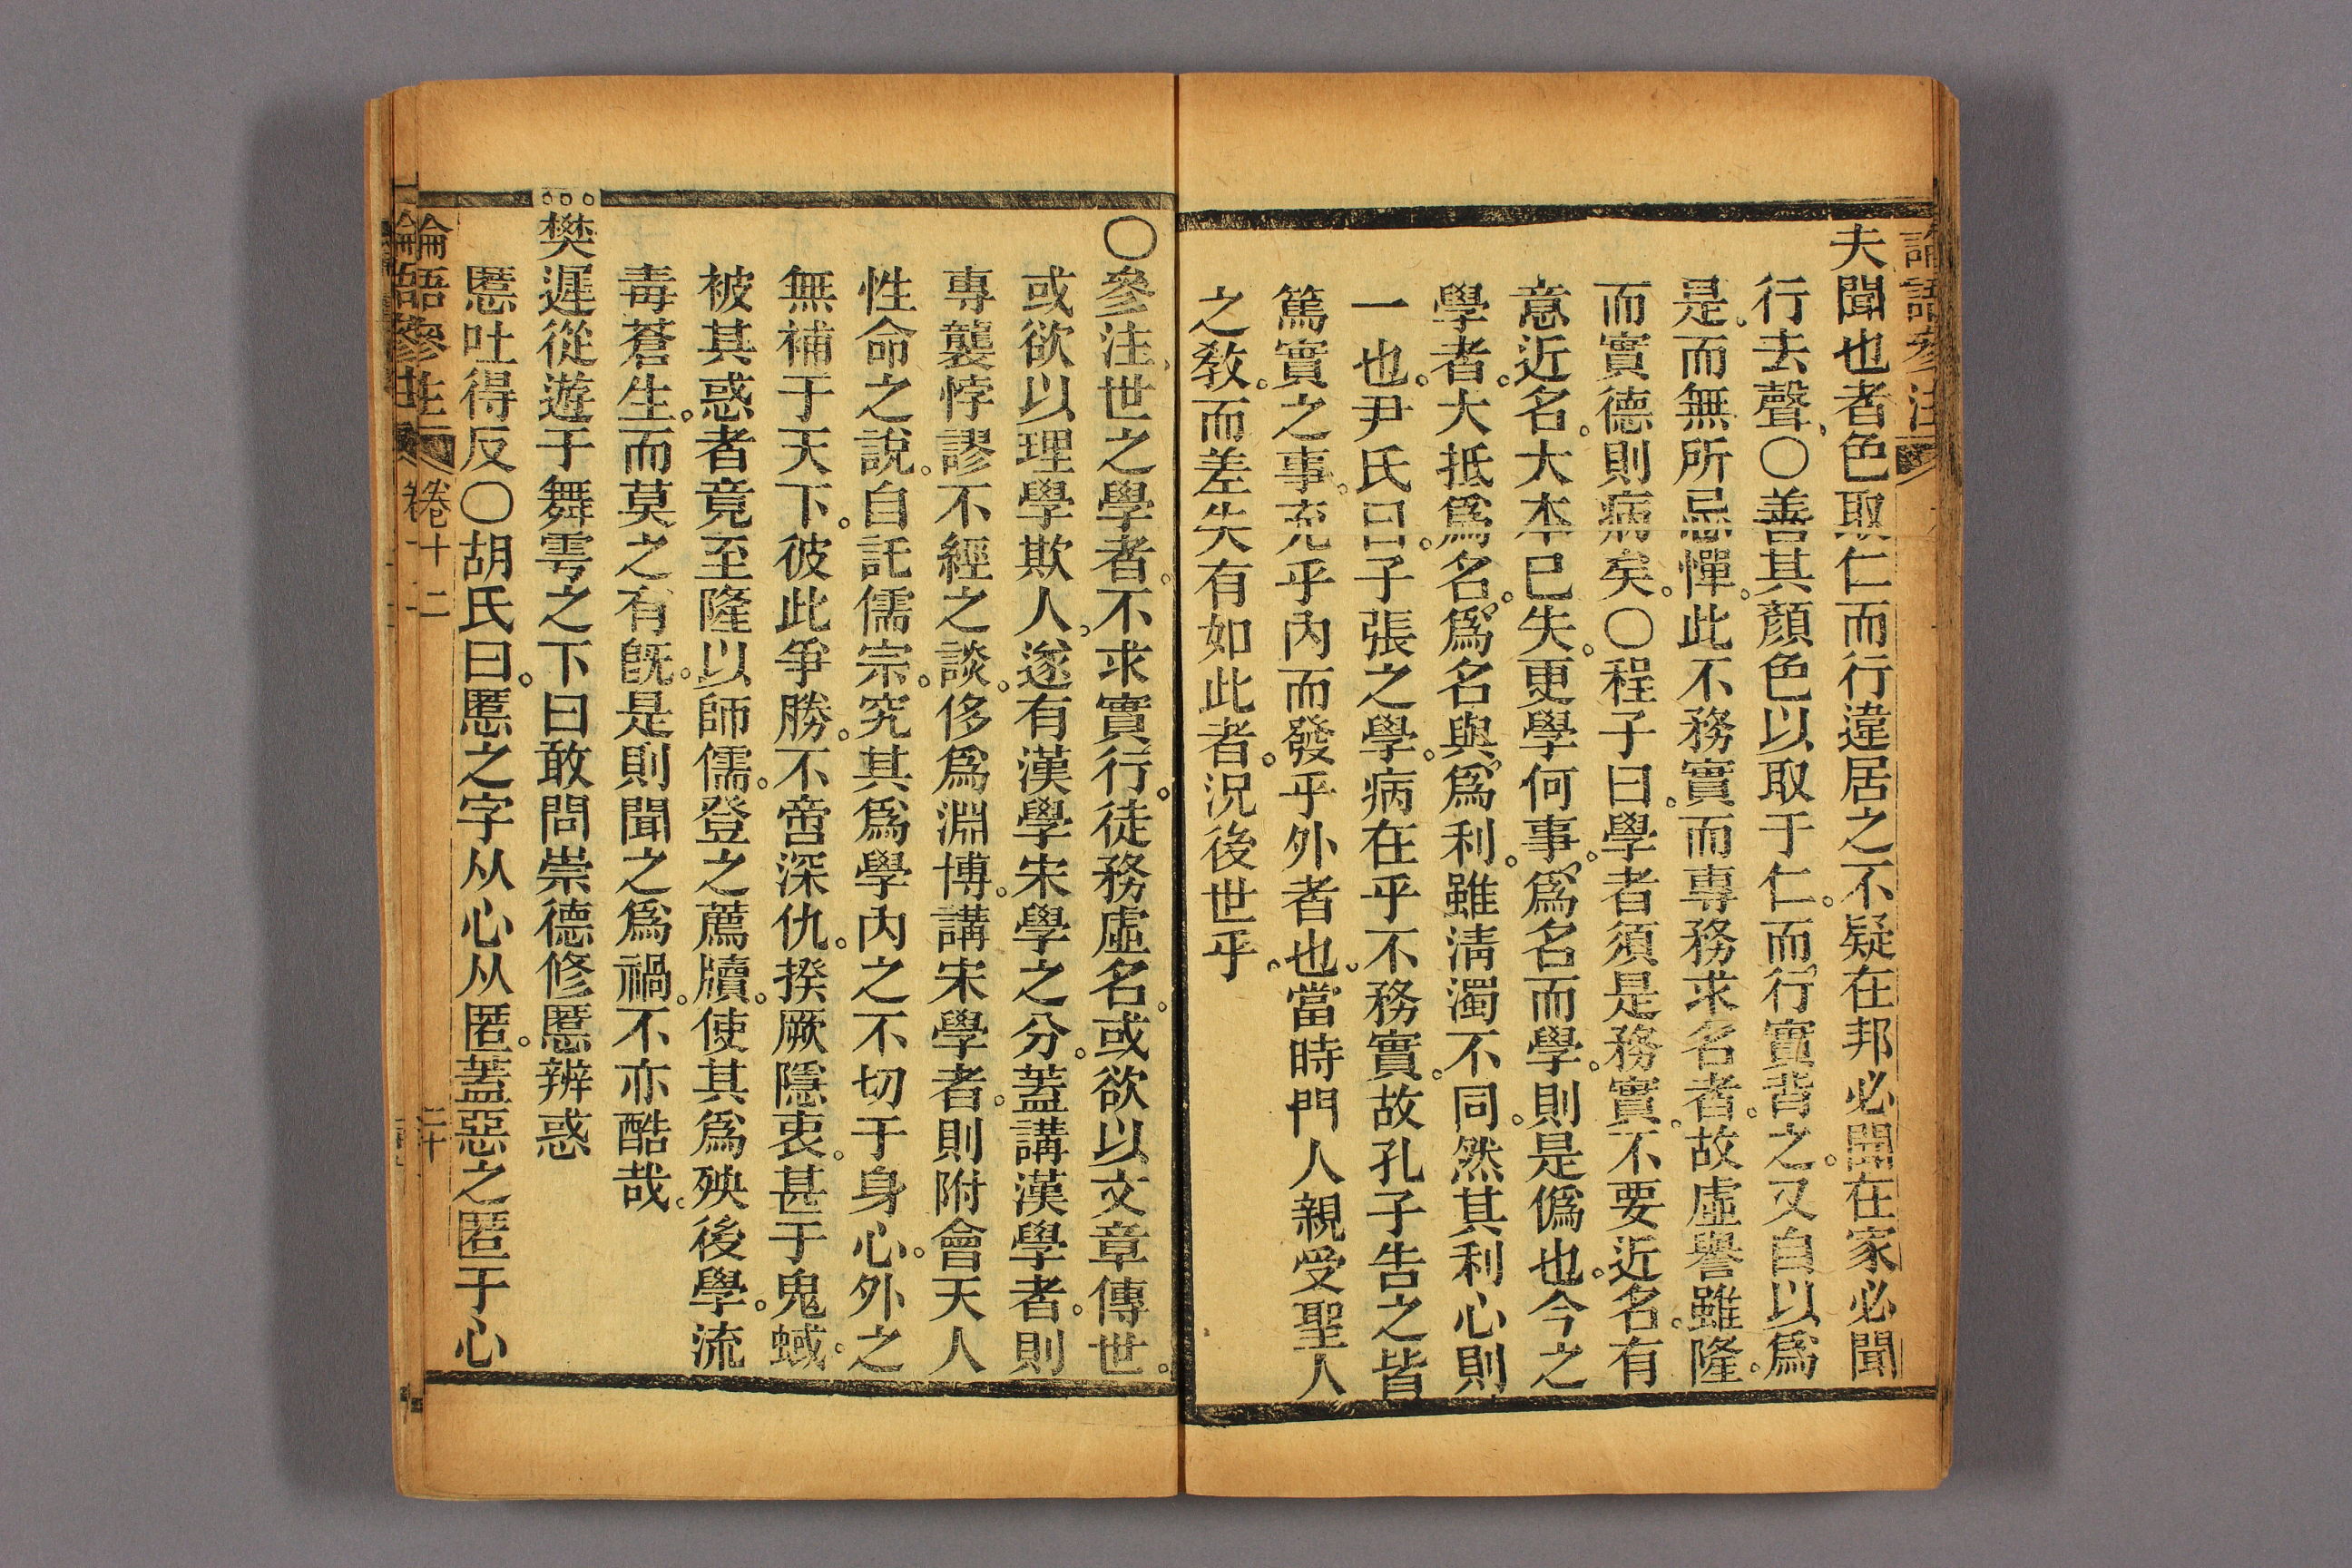 論語參注
夫聞也者色取仁而行違居之不疑在邦必聞在家必聞
行去聲、〇善其顏色以取于仁。而行實背之。又自以爲
是。而無所忌憚。此不務實。而專務求名者。故虛譽雖隆。
而實德則病矣。〇程子曰。學者須是務實。不要近名。有
意近名。大本已失。更學何事。爲名而學。則是僞也。今之
學者。大抵爲名。爲名與爲利。雖淸濁不同。然其利心則
一也。尹氏曰。子張之學。病在乎不務實。故孔子告之皆
篤實之事。充乎內而發乎外者也。當時門人親受聖人
之敎。而差失有如此者。況後世乎。
〇參注、世之學者。不求實行。徒務虛名。或欲以文章傳世。
或欲以理學欺人。遂有漢學宋學之分。蓋講漢學者。則
專襲悖謬不經之談。侈爲淵博。講宋學者。則附會天人
性命之說。自託儒宗。究其爲學內之不切于身心。外之
無補于天下。彼此爭勝。不啻深仇。揆厥隱衷。甚于鬼蜮。
被其惑者竟至隆以師儒。登之薦牘。使其爲殃後學。流
毒蒼生。而莫之有旣。是則聞之爲禍。不亦酷哉。
樊遲從遊于舞雩之下曰敢問崇德修慝辨惑
慝吐得反〇胡氏曰。慝之字从心从匿。蓋惡之匿于心
論語參注 卷十二 二十